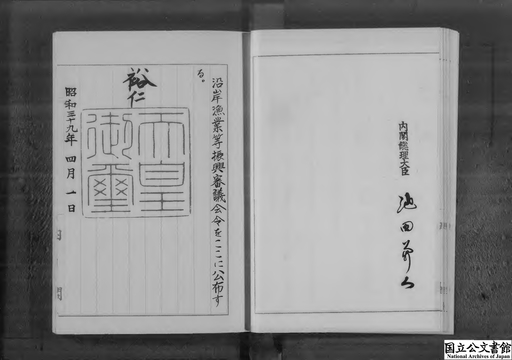 内閣総理大臣
池田勇人
沿岸漁業等振興審議会令をここに公布す
る。
裕仁
天皇
御璽
昭和三十九年四月一日
国立公文書館
National Archives of Japan